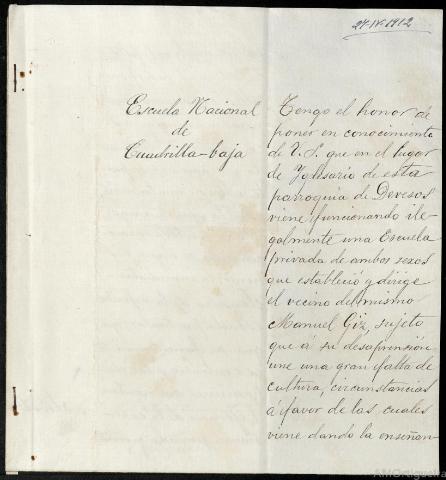 27-IV-1912
Escuela Nacional
de
Cuadrilla-baja
Tengo el honor de
poner en conocimiento
de V. S. que en el lugar
de Yglesario de esta
parroquia de Devesos
viene funcionando ile
galmente una Escuela
privada de ambos sexos
que estableció y dirige
el vecino del mismo
Manuel Giz, sujeto
que á su desaprensión
une una gran falta de
cultura, circunstancias
á favor de las cuales
viene dando la enseñan-
AMOrtigueira